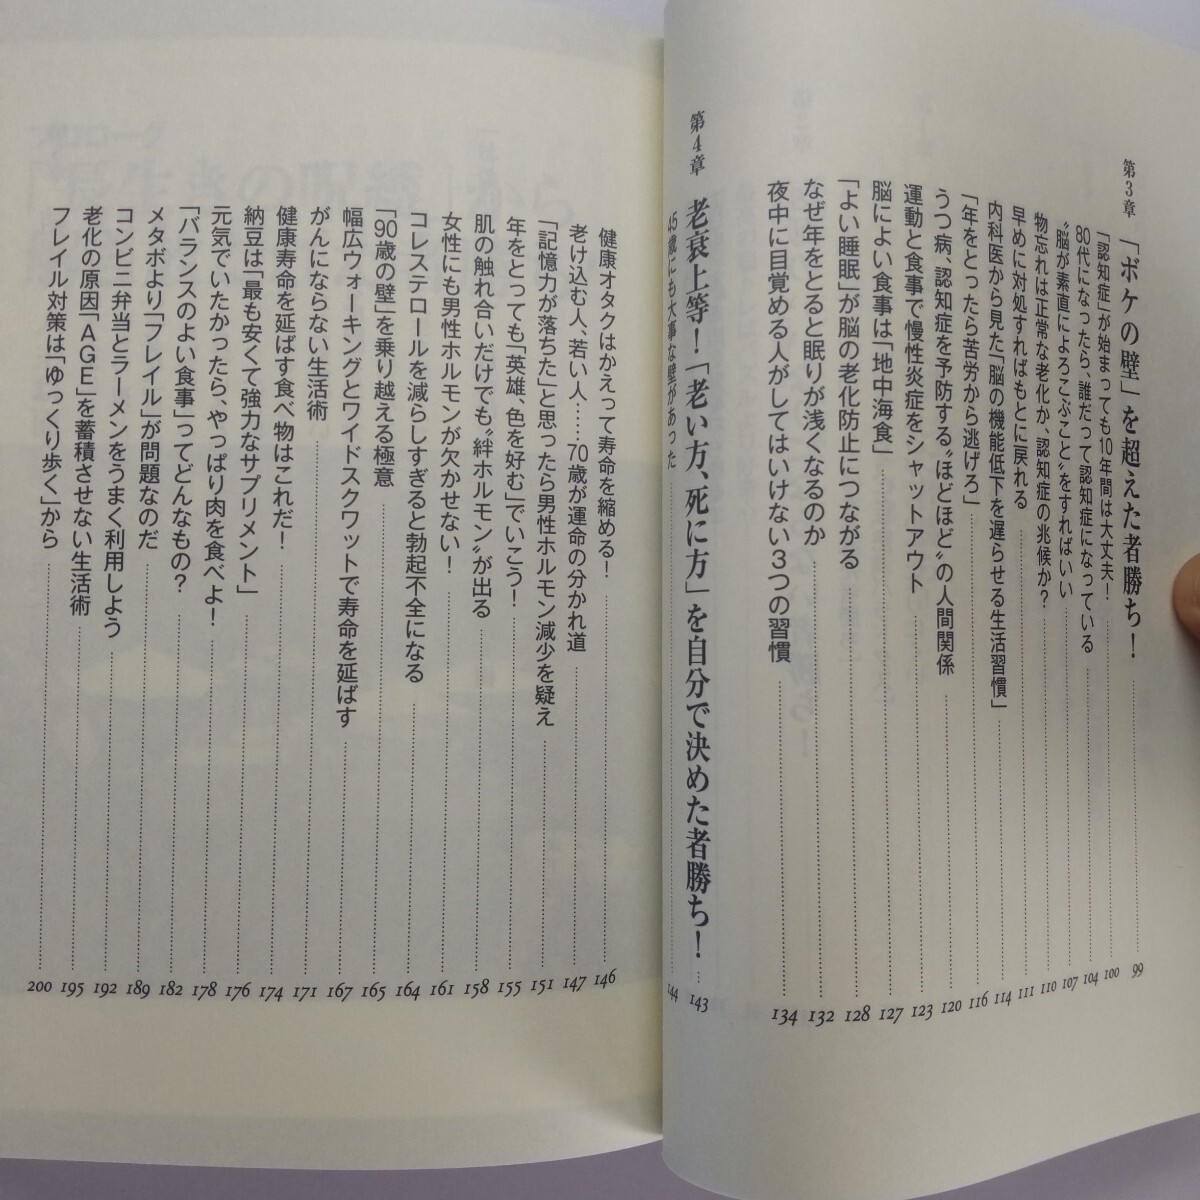 第3章 「ボケの壁」を超えた者勝ち！ 99
「認知症」が始まっても10年間は大丈夫！ 100
80代になったら、誰だって認知症になっている 104
“脳が素直によろこぶこと”をすればいい 107
物忘れは正常な老化か、認知症の兆候か？ 110
早めに対処すればもとに戻れる 111
内科医から見た「脳の機能低下を遅らせる生活習慣」 114
「年をとったら苦労から逃げろ」 116
うつ病、認知症を予防する“ほどほど”の人間関係 120
運動と食事で慢性炎症をシャットアウト 123
脳によい食事は「地中海食」 127
「よい睡眠」が脳の老化防止につながる 128
なぜ年をとると眠りが浅くなるのか 132
夜中に目覚める人がしてはいけない3つの習慣 134
第4章 老衰上等！「老い方、死に方」を自分で決めた者勝ち！ 143
45歳にも大事な壁があった 144
健康オタクはかえって寿命を縮める！ 146
老け込む人、若い人……70歳が運命の分かれ道 147
「記憶力が落ちた」と思ったら男性ホルモン減少を疑え 151
年をとっても「英雄、色を好む」でいこう！ 155
肌の触れ合いだけでも“絆ホルモン”が出る 158
女性にも男性ホルモンが欠かせない！ 161
コレステロールを減らしすぎると勃起不全になる 164
「90歳の壁」を乗り越える極意 165
幅広ウォーキングとワイドスクワットで寿命を延ばす 167
がんにならない生活術 171
健康寿命を延ばす食べ物はこれだ！ 174
納豆は「最も安くて強力なサプリメント」 176
元気でいたかったら、やっぱり肉を食べよ！ 178
「バランスのよい食事」ってどんなもの？ 182
メタボより「フレイル」が問題なのだ 189
コンビニ弁当とラーメンをうまく利用しよう 192
老化の原因「AGE」を蓄積させない生活術 195
フレイル対策は「ゆっくり歩く」から 200